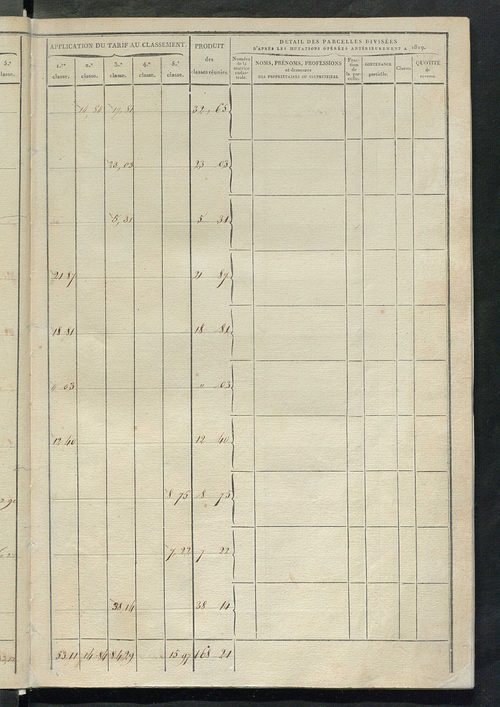 5.e
classe.
APPLICATION DU TARIF AU CLASSEMENT.
1.re classe.
2.e classe.
3.e classe.
4.e classe.
5.e classe.
PRODUIT
des
classes réunies.
DÉTAIL DES PARCELLES DIVISÉES
D'APRÈS LES MUTATIONS OPÉRÉES ANTÉRIEUREMENT A 1829.
Numéros de la matrice cadastrale.
NOMS, PRÉNOMS, PROFESSIONS
et demeures
DES PROPRIÉTAIRES OU USUFRUITIERS.
de la parcelle.
CONTENANCE
partielle.
Classes.
QUOTITÉ
du
revenu.
14, 84 32, 65
23, 03 23 03
5, 31 5 31
21 87 21 87
18 81 18 81
" 03 " 03
12 40 12 40
8 75 8 75
7 22 7 22
38 14 38 14
53 11 14 84 84 29 15 97 168 21